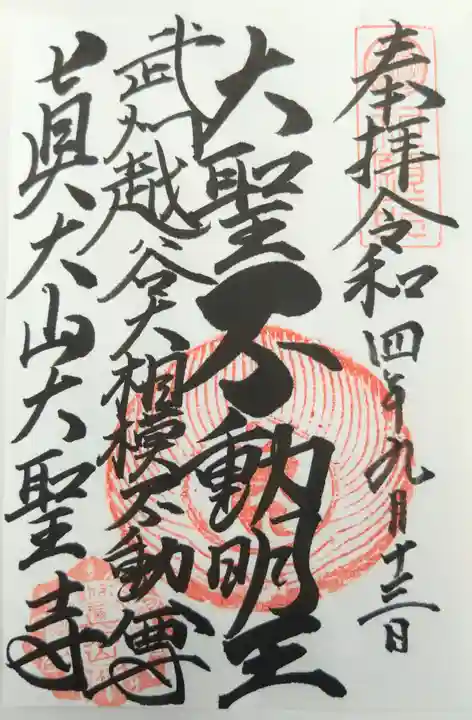 奉拝 令和四年九月十三日
大聖不動明王
武州越谷大相模不動尊
真大山大聖寺